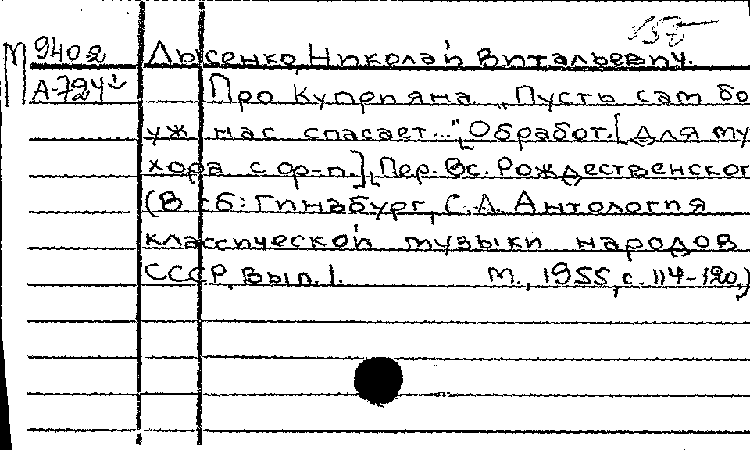 М 940 2 Лысенко, Николай Витальевич.
А-724 Про Куприяна. „Пусть сам бо
уж нас спасает...", Обработ. [для му
хора с ор-п.], Пер. Вс. Рождественског
(В сб: Гинзбург, С.Л. Антология
классической музыки народов
СССР, Вып. 1. М., 1955, с. 114-120.)